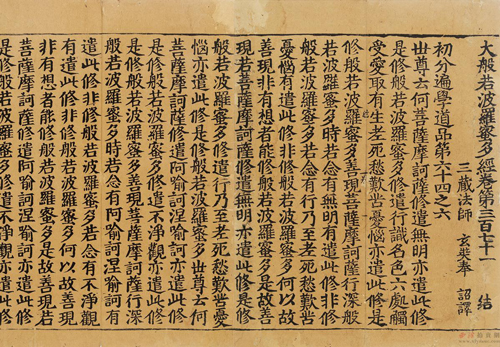 大般若波羅蜜多經卷第三百七十一 結
三藏法師 玄奘奉 詔譯
初分遍學道品第六十四之六
世尊云何菩薩摩訶薩修遣無明亦遣此修
是修般若波羅蜜多修遣行識名色六處觸
受愛取有生老死愁歎苦憂惱亦遣此修是
修般若波羅蜜多善現菩薩摩訶薩行深般
若波羅蜜多時若念有無明有遣此修非修
般若波羅蜜多若念有行乃至老死愁歎苦
憂惱有遣此修非修般若波羅蜜多何以故
善現非有想者能修般若波羅蜜多是故善
現若菩薩摩訶薩修遣無明亦遣此修是修
般若波羅蜜多修遣行乃至老死愁歎苦憂
惱亦遣此修是修般若波羅蜜多世尊云何
菩薩摩訶薩修遣阿喻訶涅喻訶亦遣此修
是修般若波羅蜜多修遣不淨觀亦遣此修
是修般若波羅蜜多善現菩薩摩訶薩行深
般若波羅蜜多時若念有阿喻訶涅喻訶有
遣此修非修般若波羅蜜多若念有不淨觀
有遣此修非修般若波羅蜜多何以故善現
非有想者能修般若波羅蜜多是故善現若
菩薩摩訶薩修遣阿喻訶涅喻訶亦遣此修
是修般若波羅蜜多修遣不淨觀亦遣此修